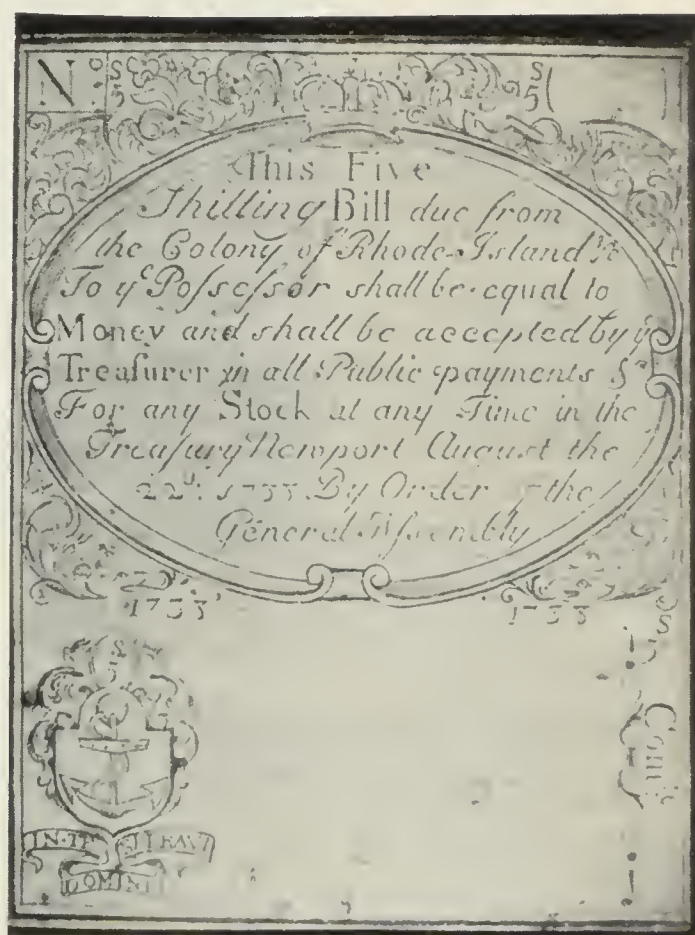 No. S 5 S 5
This Five
Shilling Bill due from
the Colony of Rhode-Island &c
To yᵉ Poſseſsor shall be equal to
Money and shall be accepted by yᵉ
Treaſurer in all Public payments &
For any Stock at any Time in the
Treaſury Newport August the
22ᵈ. 1733 By Order of the
General Aſsembly
1733 1733
S
5
IN TE
DOMINE
Com